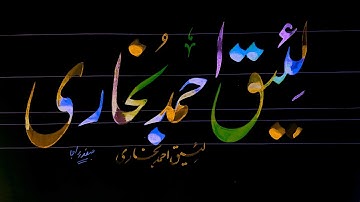 لئِیق احمد بُخاری
لئیق احمد بخاری